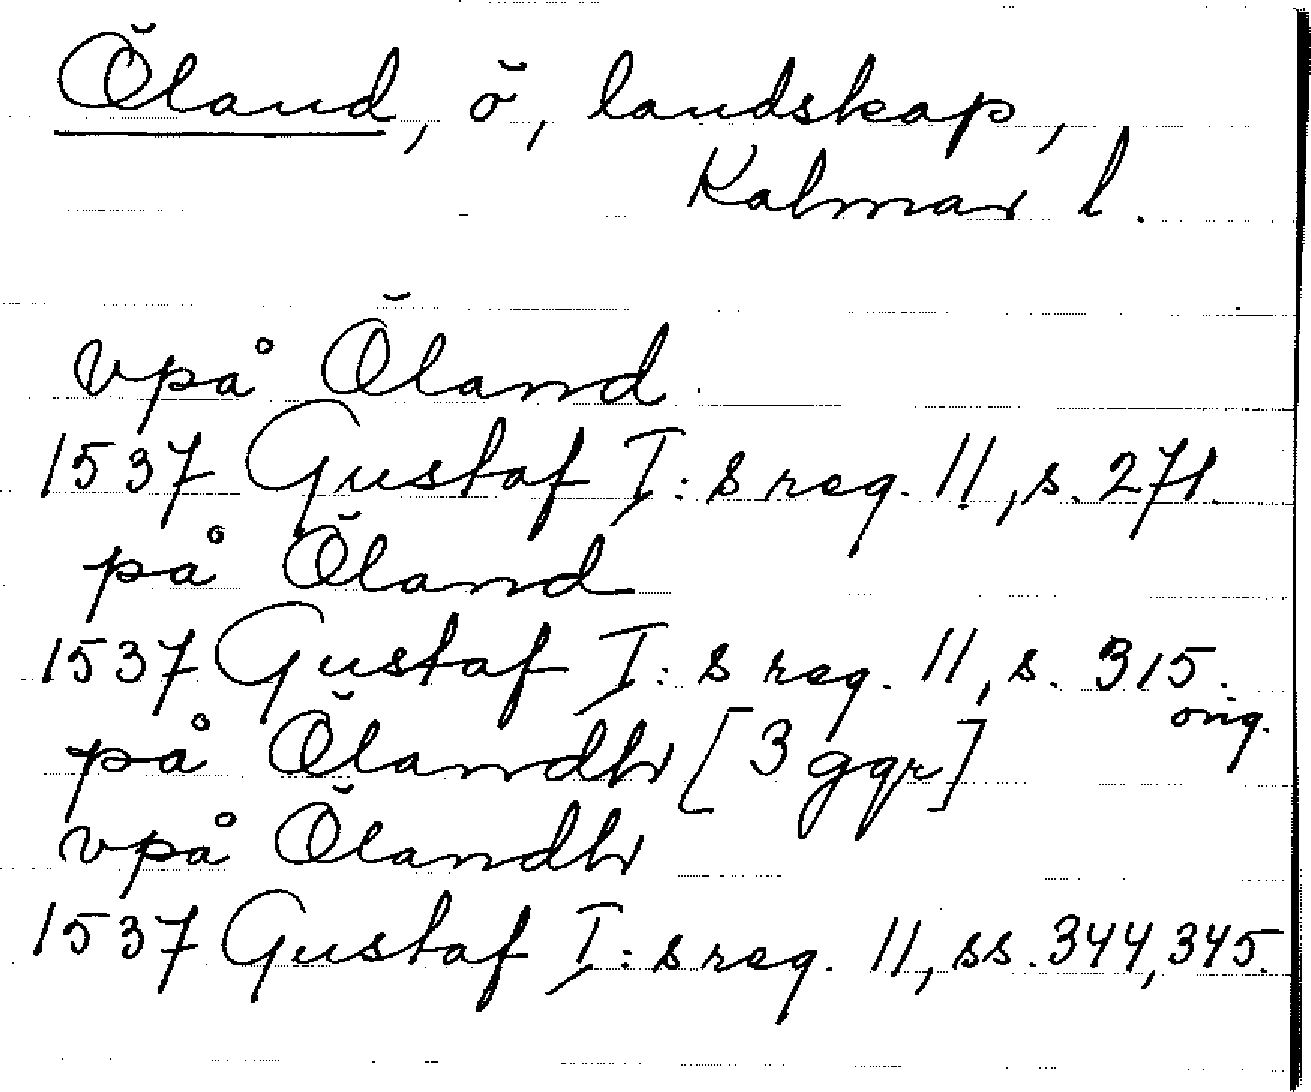 Öland, ö, landskap,
Kalmar l.
vpå Öland
1537 Gustaf I:s reg. 11, s. 271.
på Öland
1537 Gustaf I:s reg. 11, s. 315.
orig.
på Ölandh [3 ggr]
vpå Ölandh
1537 Gustaf I:s reg. 11, ss. 344, 345.